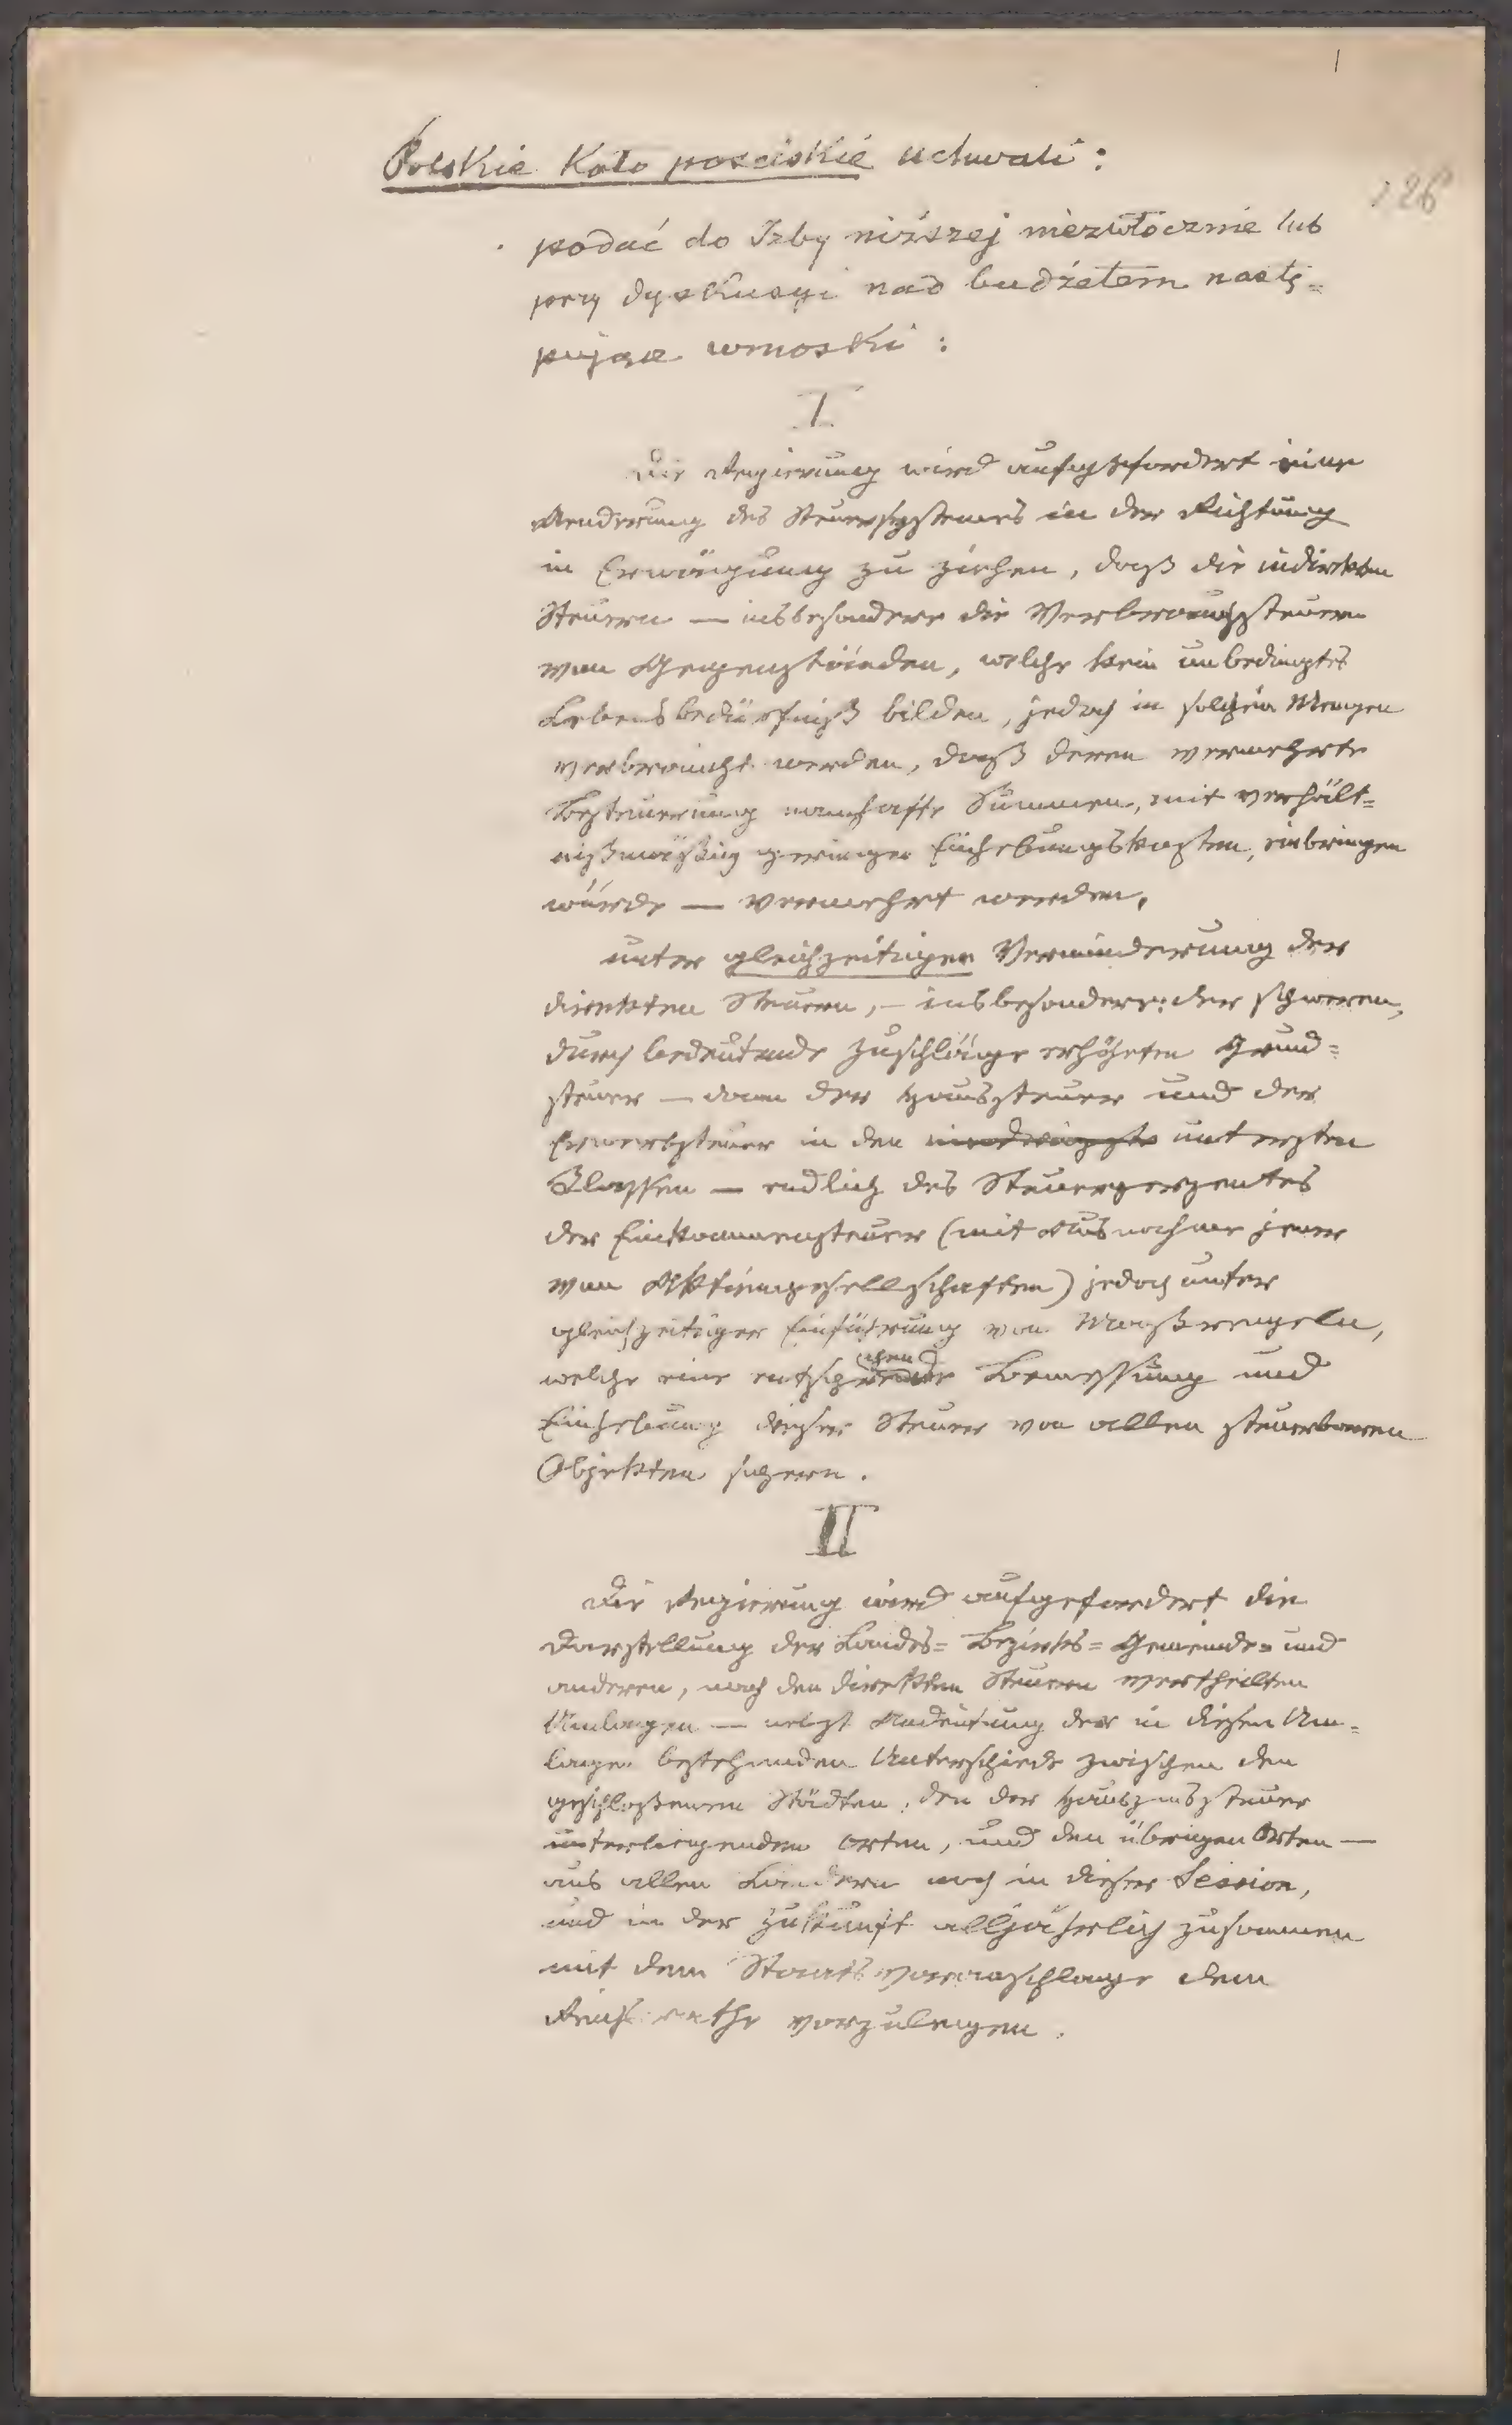 1
126
Polskie Koło poselskie uchwali:
podać do Izby niższej niezwłocznie lub
przy dyskusyi nad budżetem nastę=
pujące wnioski:
I
Die Regierung wird aufgefordert eine
Aenderung des Steuersystemes in der Richtung
in Erwägung zu ziehen, daß die indirekten
Steuern — insbesondere die Verbrauchssteuern
von Gegenständen, welche kein unbedingtes
Lebensbedürfniß bilden, jedoch in solchen Mengen
verbraucht werden, daß deren vermehrte
Besteuerung namhafte Summen, mit verhält=
nißmäßig geringen Einhebungskosten, einbringen
würde — vermehrt werden,
unter gleichzeitiger Verminderung der
direkten Steuern, — insbesondere: der schweren,
durch bedeutende Zuschläge erhöhten Grund=
steuer — dann der Haussteuer und der
Erwerbsteuer in den untersten
Klassen — endlich des Steuerperzentes
der Einkommensteuer (mit Ausnahme jener
von Aktiengesellschaften) jedoch unter
gleichzeitiger Einführung von Maßregeln,
welche eine Bemessung und
Einhebung dieser Steuer von allen steuerbaren
Objekten sichern.
II
Die Regierung wird aufgefordert die
Darstellung der Landes= Bezirks= Gemeinde= und
anderen, nach den direkten Steuern vertheilten
Umlagen — nebst Andeutung der in diesen Um=
lagen bestehenden Unterschiede zwischen den
geschloßenen Städten, den der Hauszinssteuer
unterliegenden Orten, und den übrigen Orten —
aus allen Ländern noch in dieser Session,
und in der Zukunft alljährlich zusammen
mit dem Staatsvoranschlage dem
Reichsrathe vorzulegen.